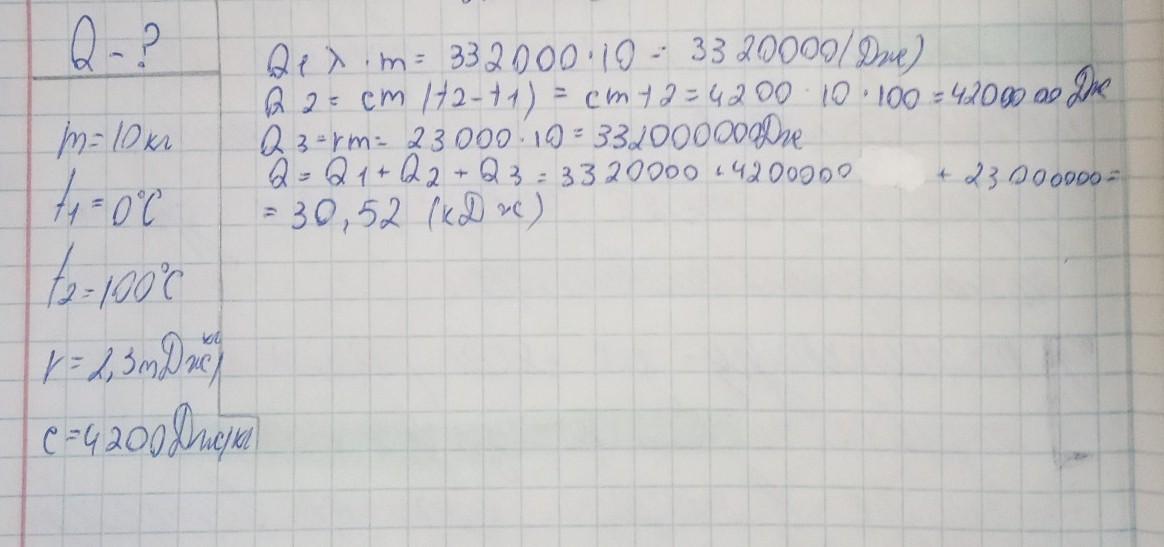 Q - ?
m = 10 кг
t1 = 0°C
t2 = 100°C
r = 2,3 mДж/кг
c = 4200 Дж/кг
Q1 λ · m = 332000 · 10 = 3320000 (Дж)
Q2 = cm (t2 - t1) = cmt2 = 4200 · 10 · 100 = 4200000 Дж
Q3 = rm = 23000 · 10 = 332000000 Дж
Q = Q1 + Q2 + Q3 = 3320000 + 4200000 + 23000000 =
= 30,52 (кДж)